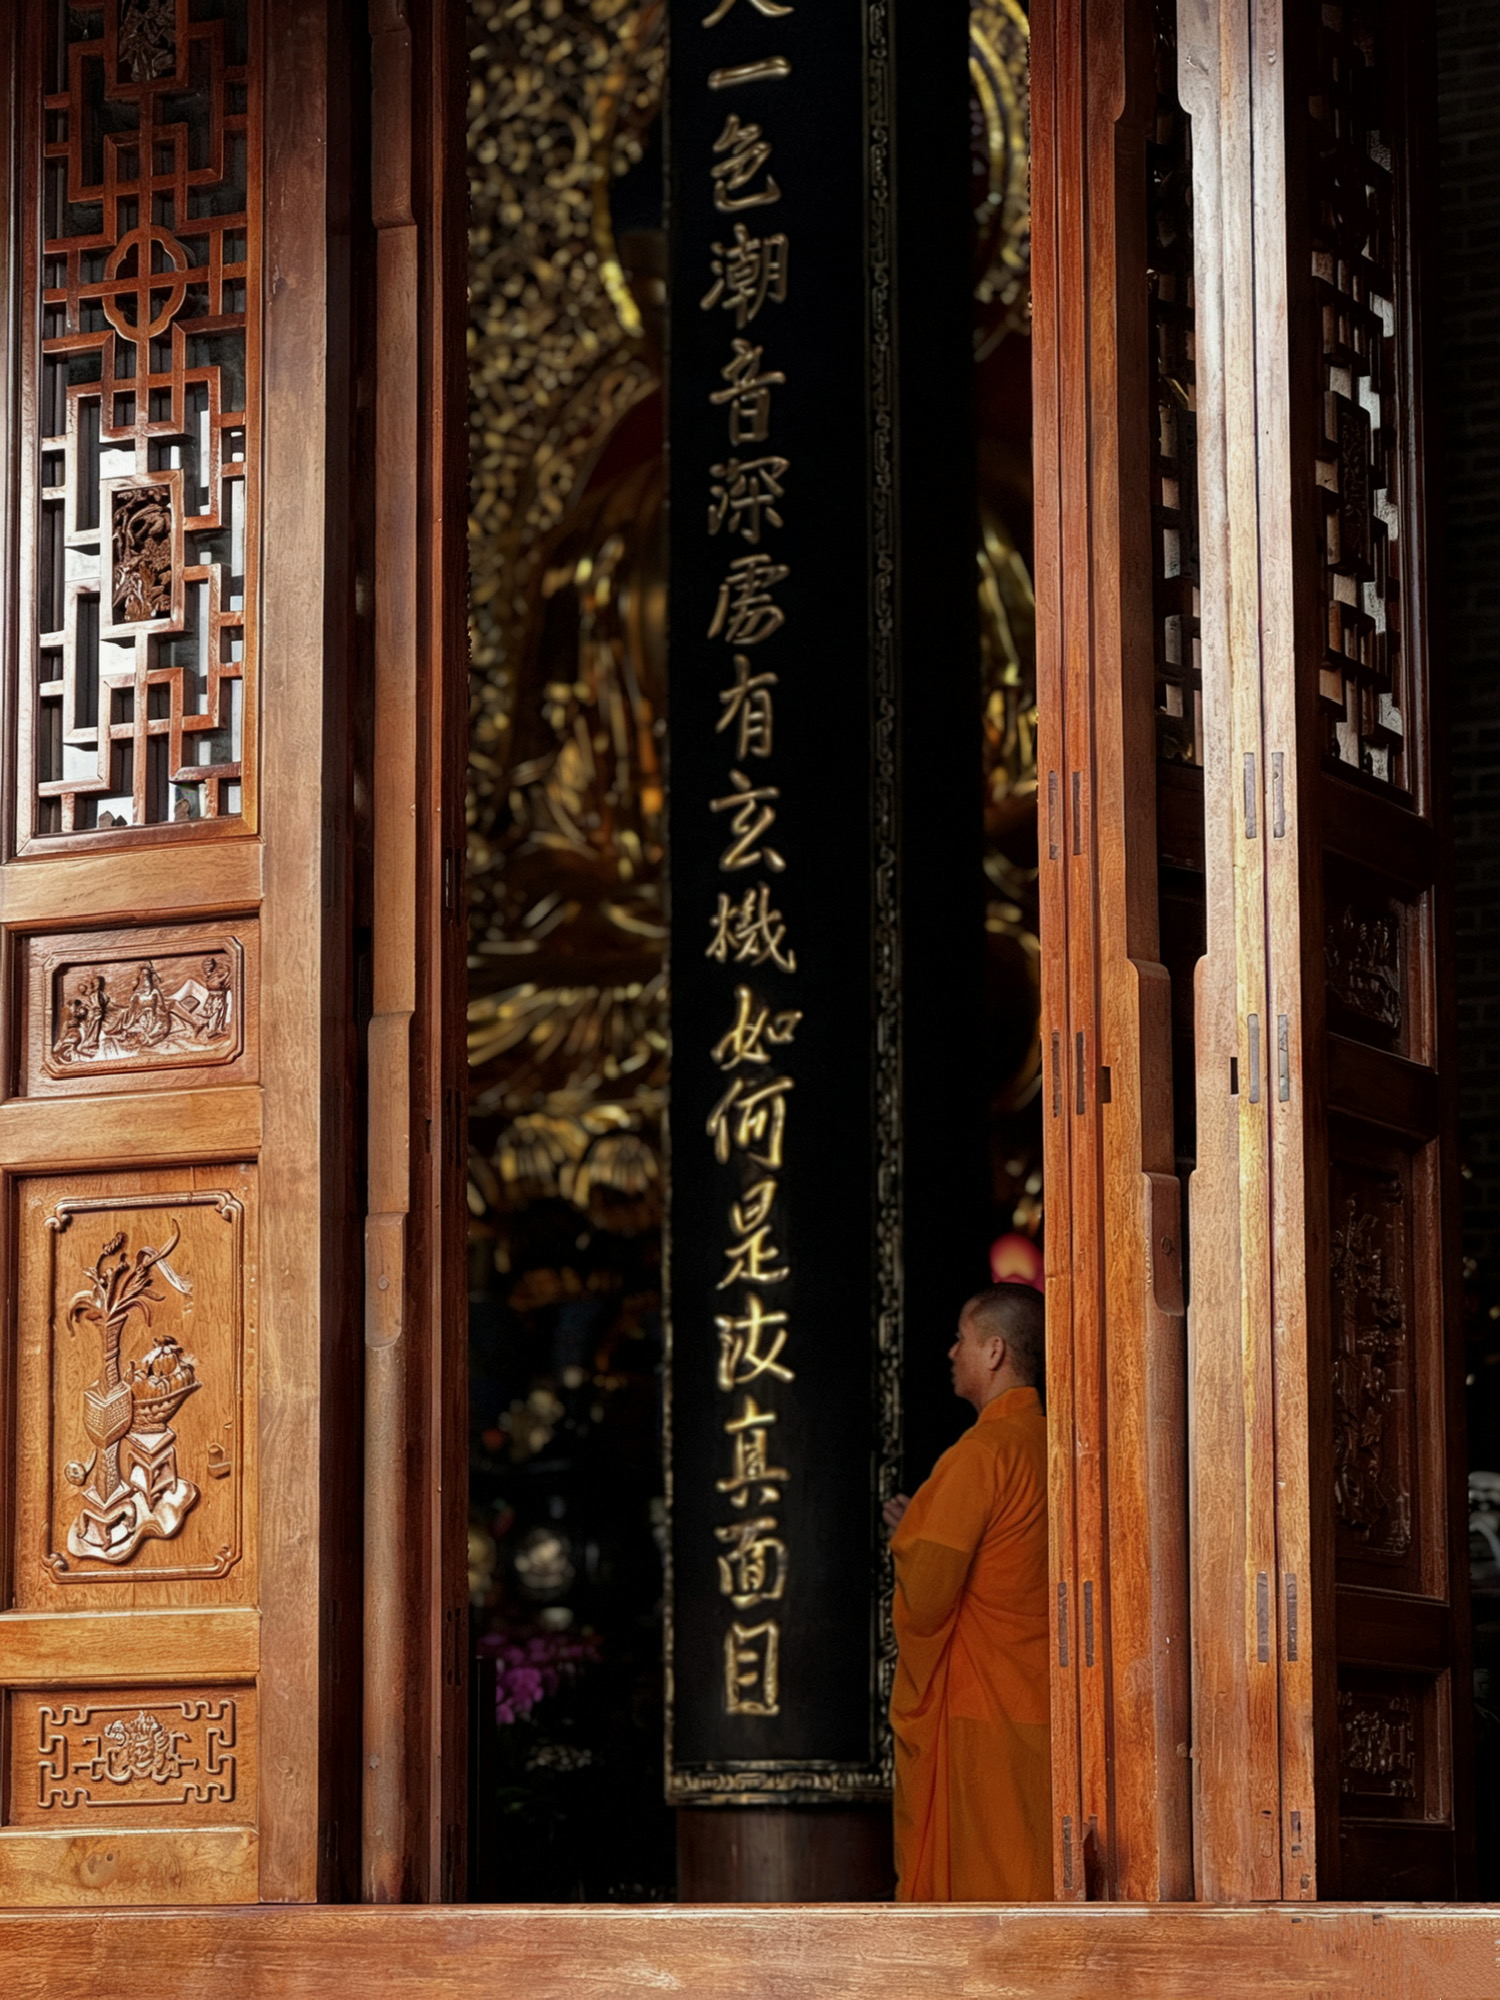 天一色潮音深處有玄機如何是汝真面目